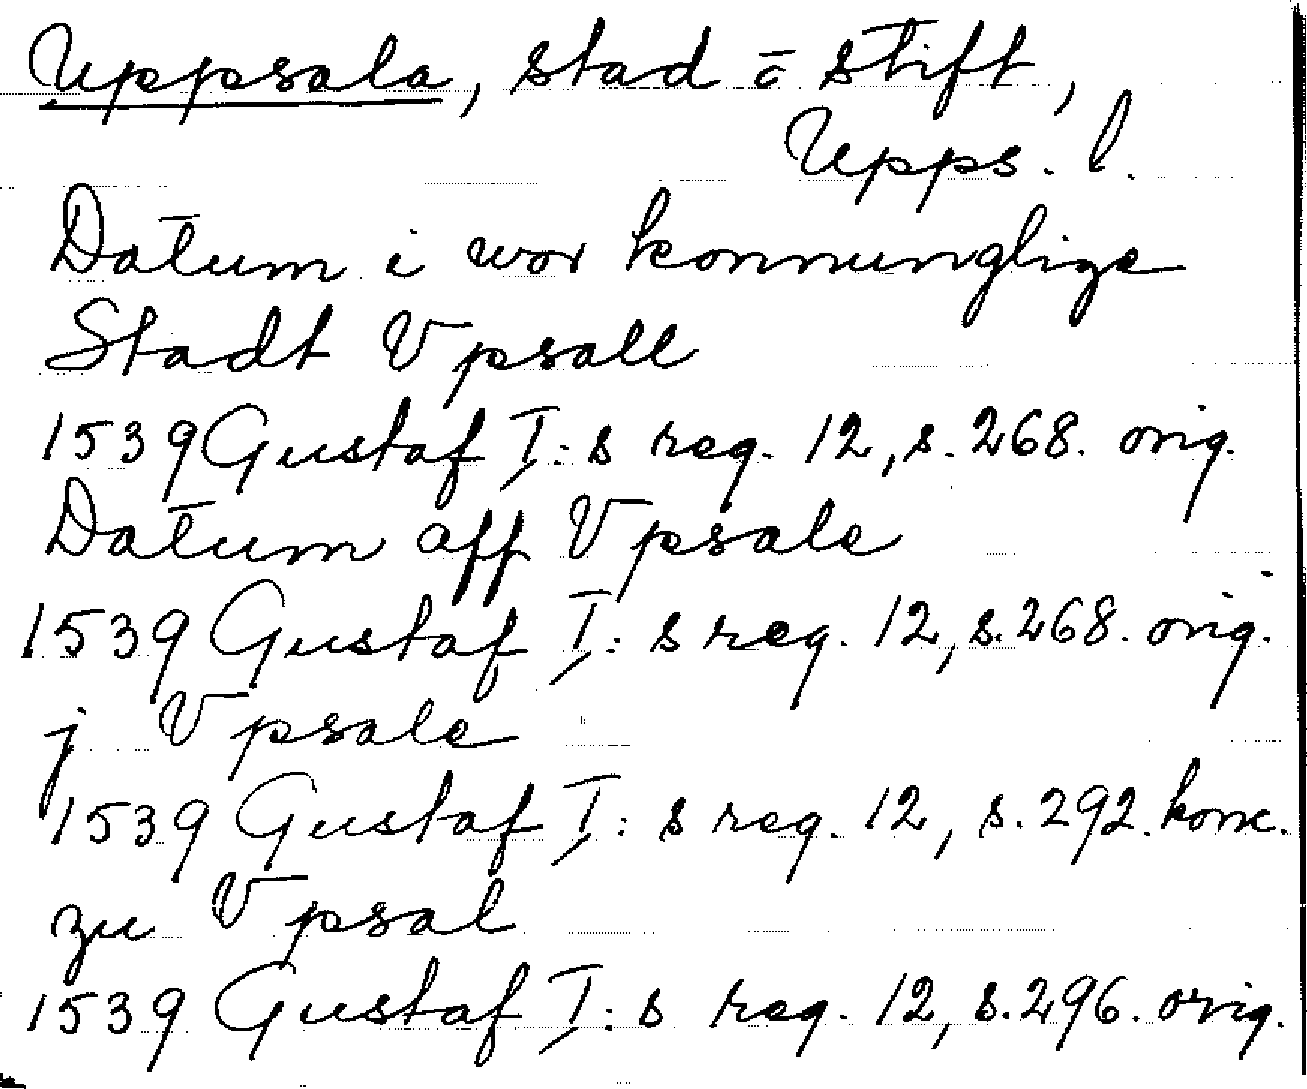 Uppsala, stad o stift,
Upps. l.
Datum i wor konnunglige
Stadt Vpsall
1539 Gustaf I:s reg. 12, s. 268. orig.
Datum aff Vpsale
1539 Gustaf I:s reg. 12, s. 268. orig.
j Vpsale
1539 Gustaf I:s reg. 12, s. 292. konc.
zu Vpsal
1539 Gustaf I:s reg. 12, s. 296. orig.